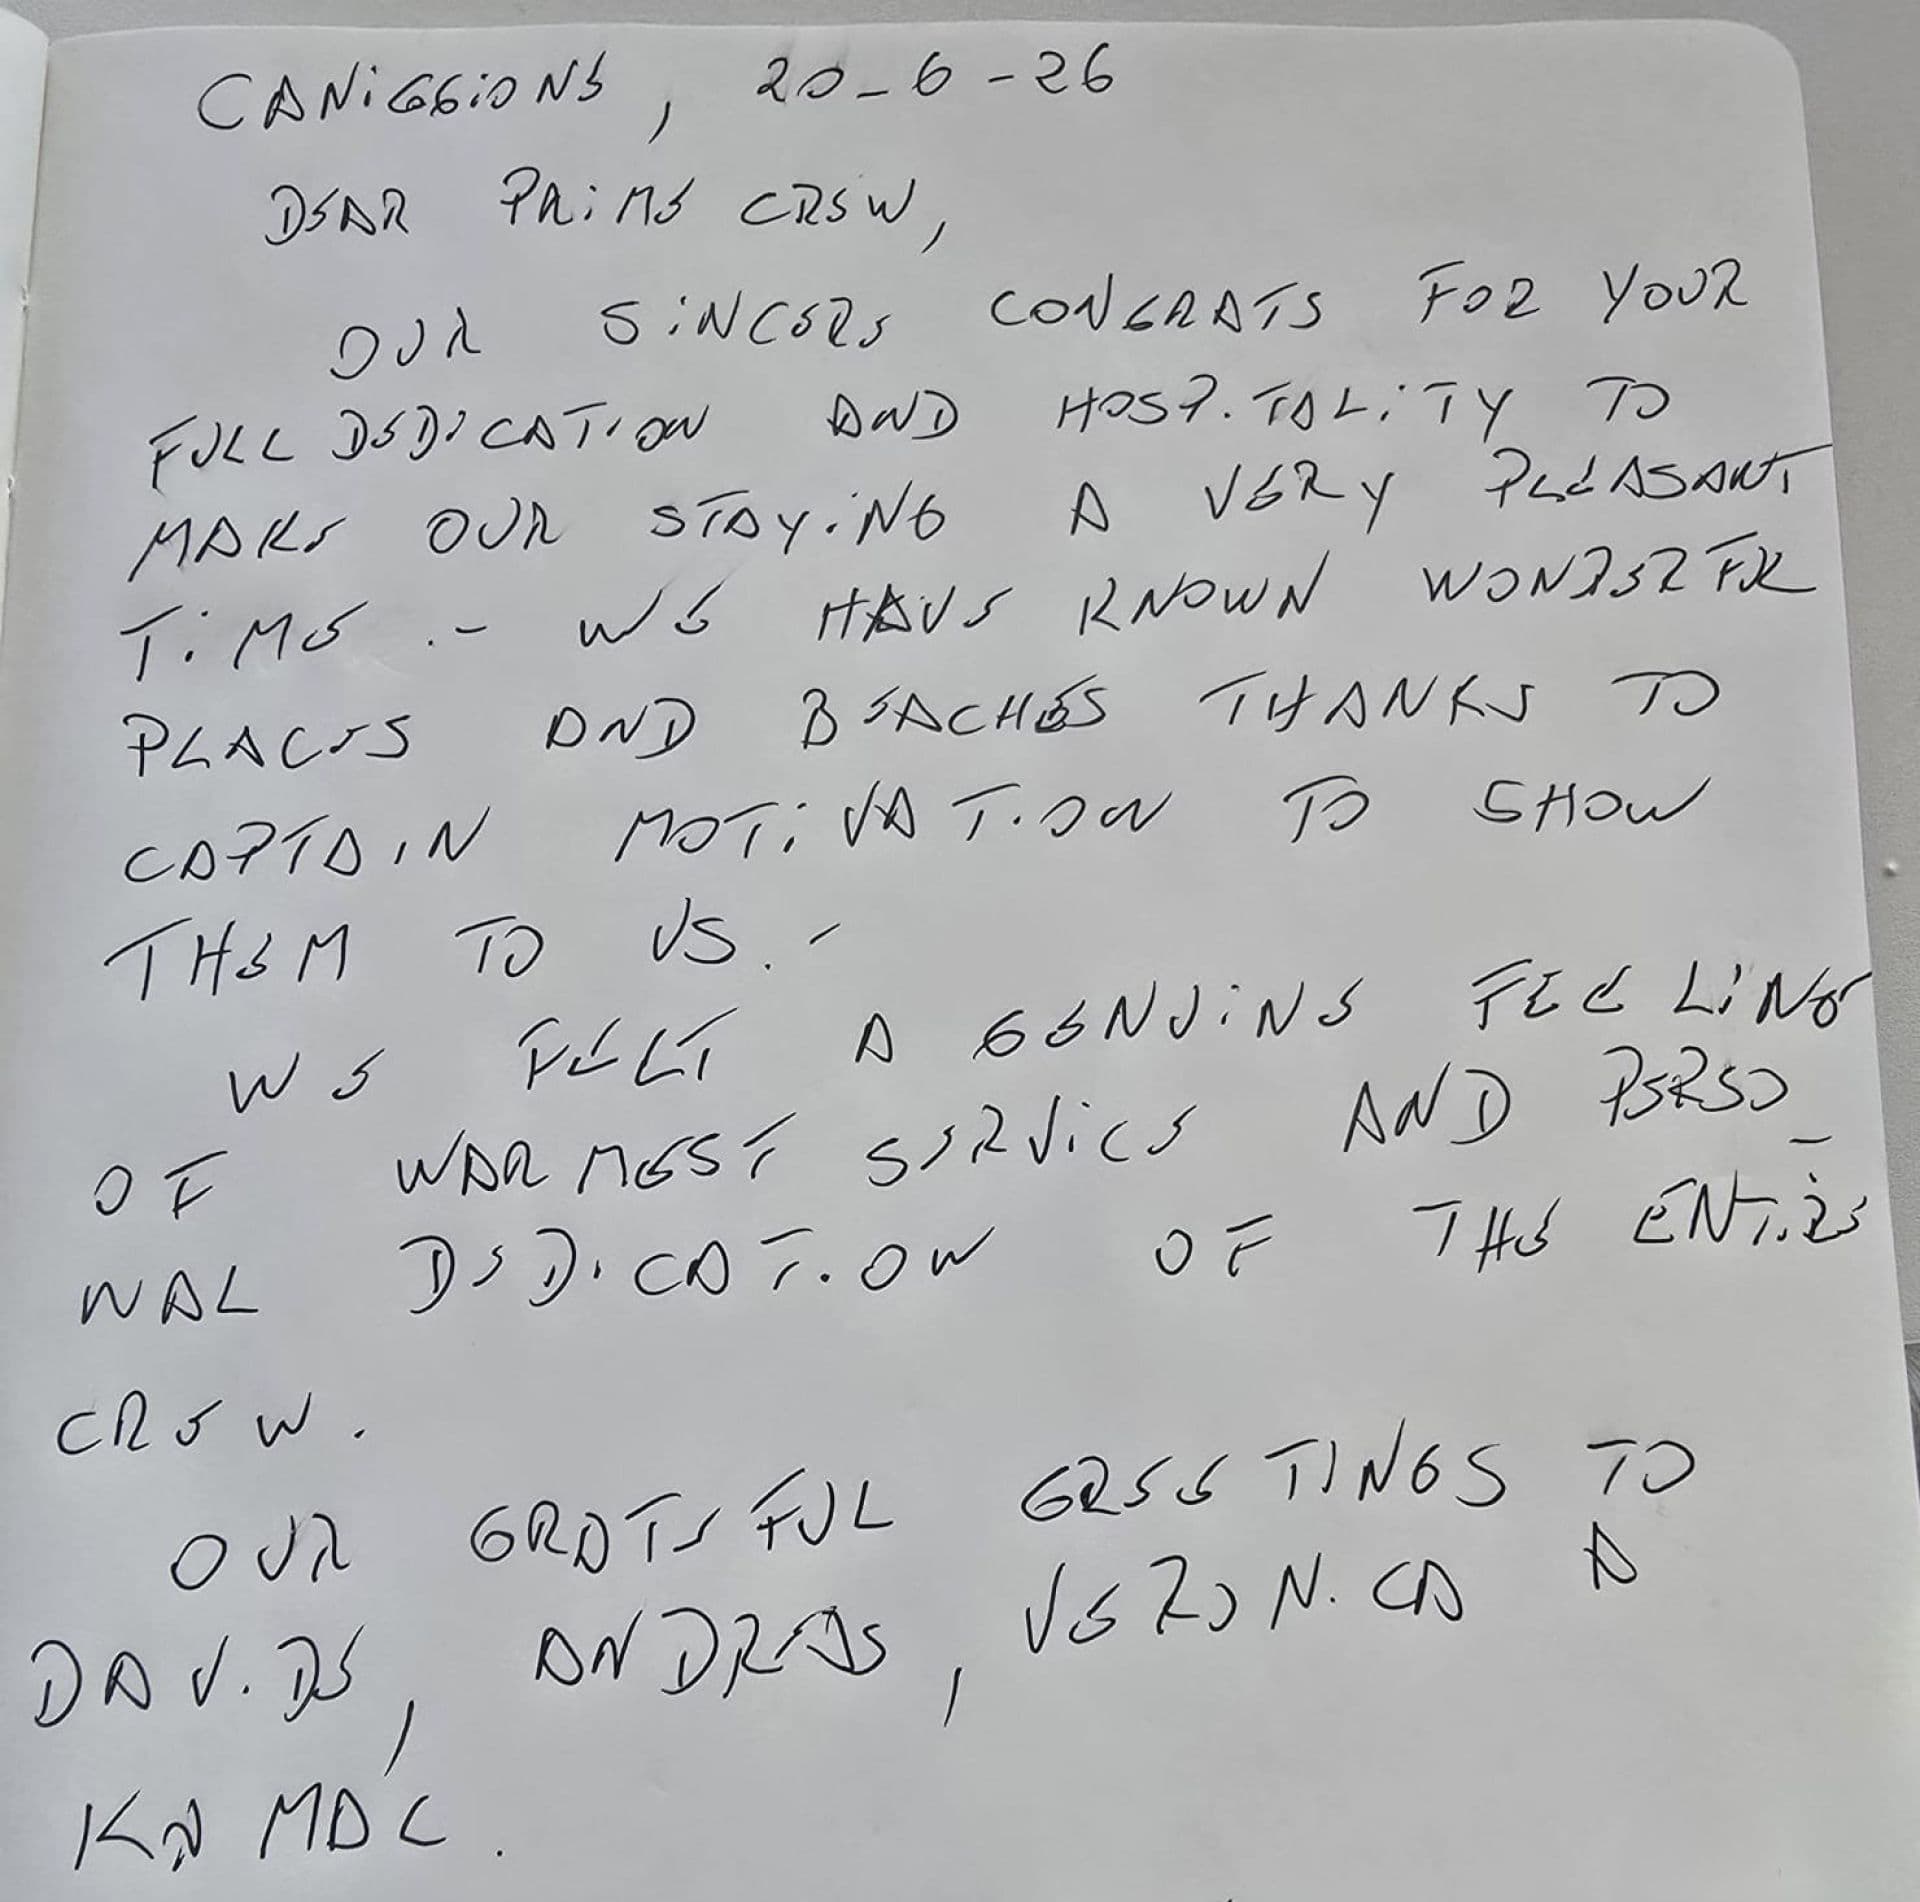 CANIGGIONE, 20-6-26
DEAR PRIME CREW,
OUR SINCERE CONGRATS FOR YOUR
FULL DEDICATION AND HOSPITALITY TO
MAKE OUR STAYING A VERY PLEASANT
TIME .- WE HAVE KNOWN WONDERFUL
PLACES AND BEACHES THANKS TO
CAPTAIN MOTIVATION TO SHOW
THEM TO US.-
WE FELT A GENUINE FEELING
OF WARMEST SERVICE AND PERSO_
NAL DEDICATION OF THE ENTIRE
CREW.
OUR GRATEFUL GREETINGS TO
DAVIDE, ANDREAS, VERONICA A
KAMAL.